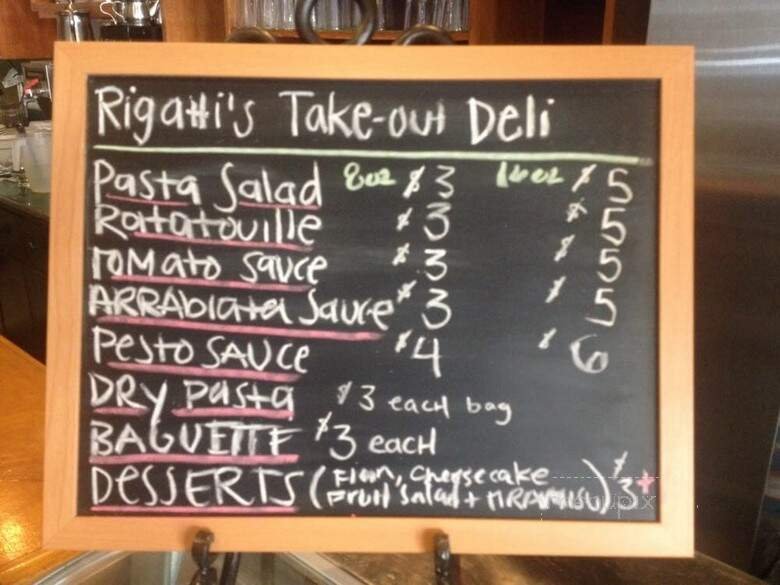 Rigatti's Take-out Deli
Pasta Salad 8oz $3 16oz $5
Ratatouille $3 $5
Tomato Sauce $3 $5
ARRAbiata Sauce $3 $5
Pesto SAUCE $4 $6
DRY Pasta $3 each bag
BAGUETTE $3 each
DESSERTS (Flan, Cheesecake
Fruit Salad + TIRAMISU) $3+
menupix